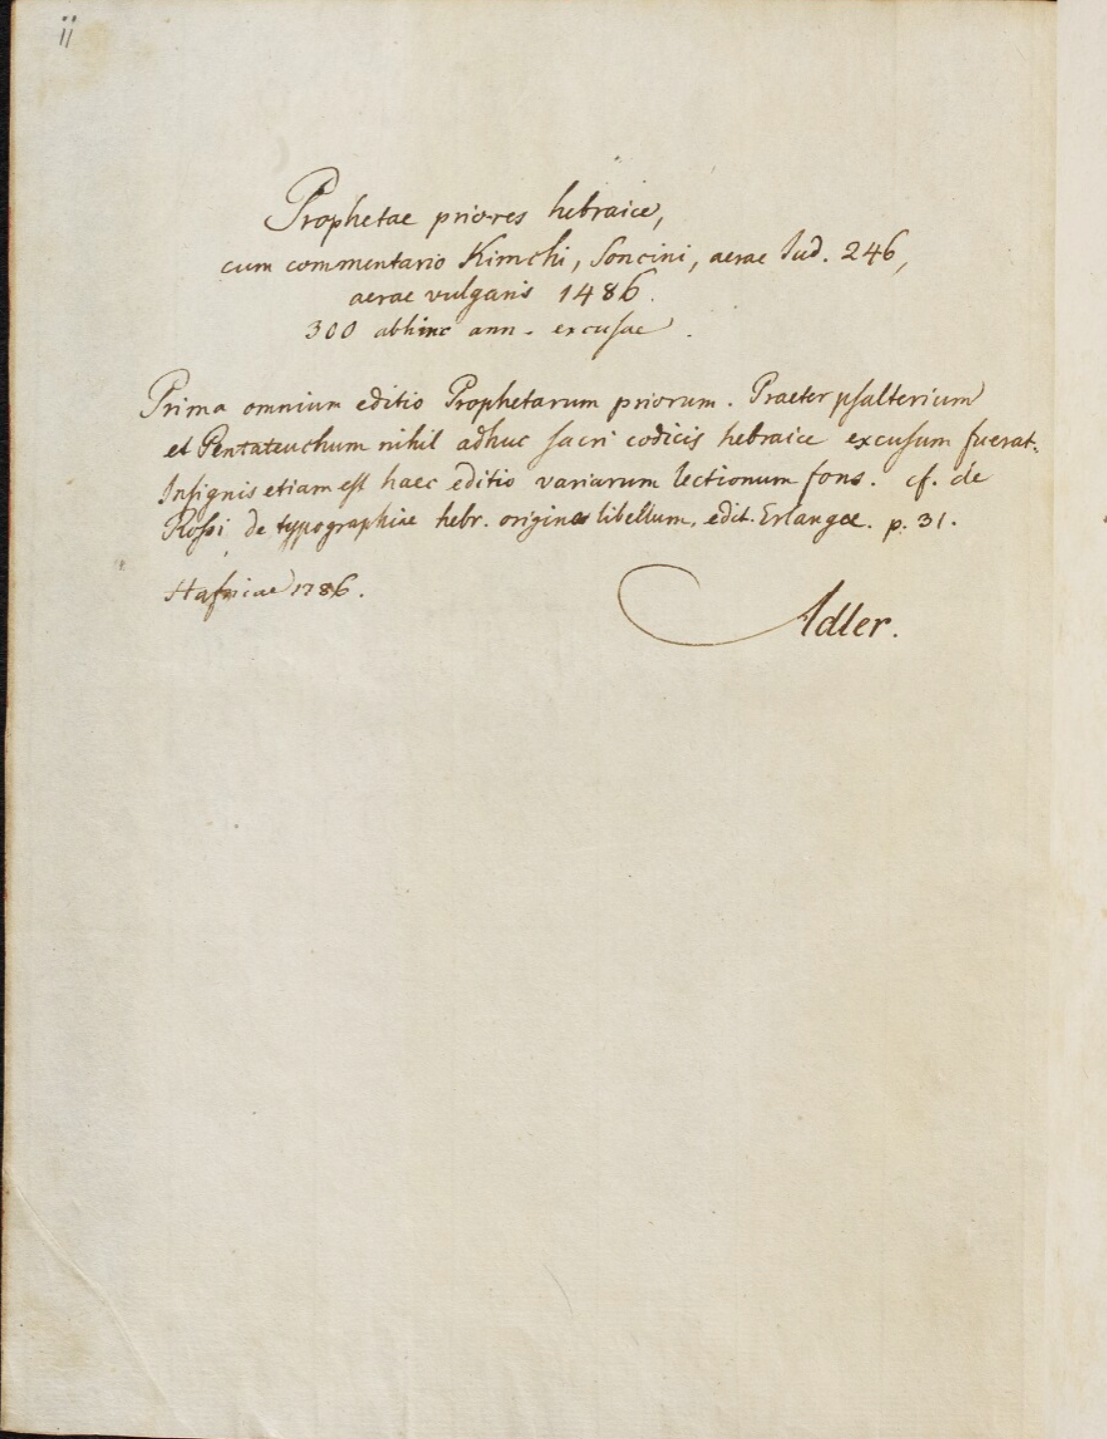 ii
Prophetae priores hebraice,
cum commentario Kimchi, Soncini, aerae Iud. 246,
aerae vulgaris 1486.
300 abhinc ann. excusae.
Prima omnium editio Prophetarum priorum. Praeter psalterium
et Pentateuchum nihil adhuc sacri codicis hebraice excusum fuerat.
Insignis etiam est haec editio variarum lectionum fons. cf. de
Rossi de typographiae hebr. origines libellum, edit. Erlangae. p. 31.
Hafniae 1786.
Adler.